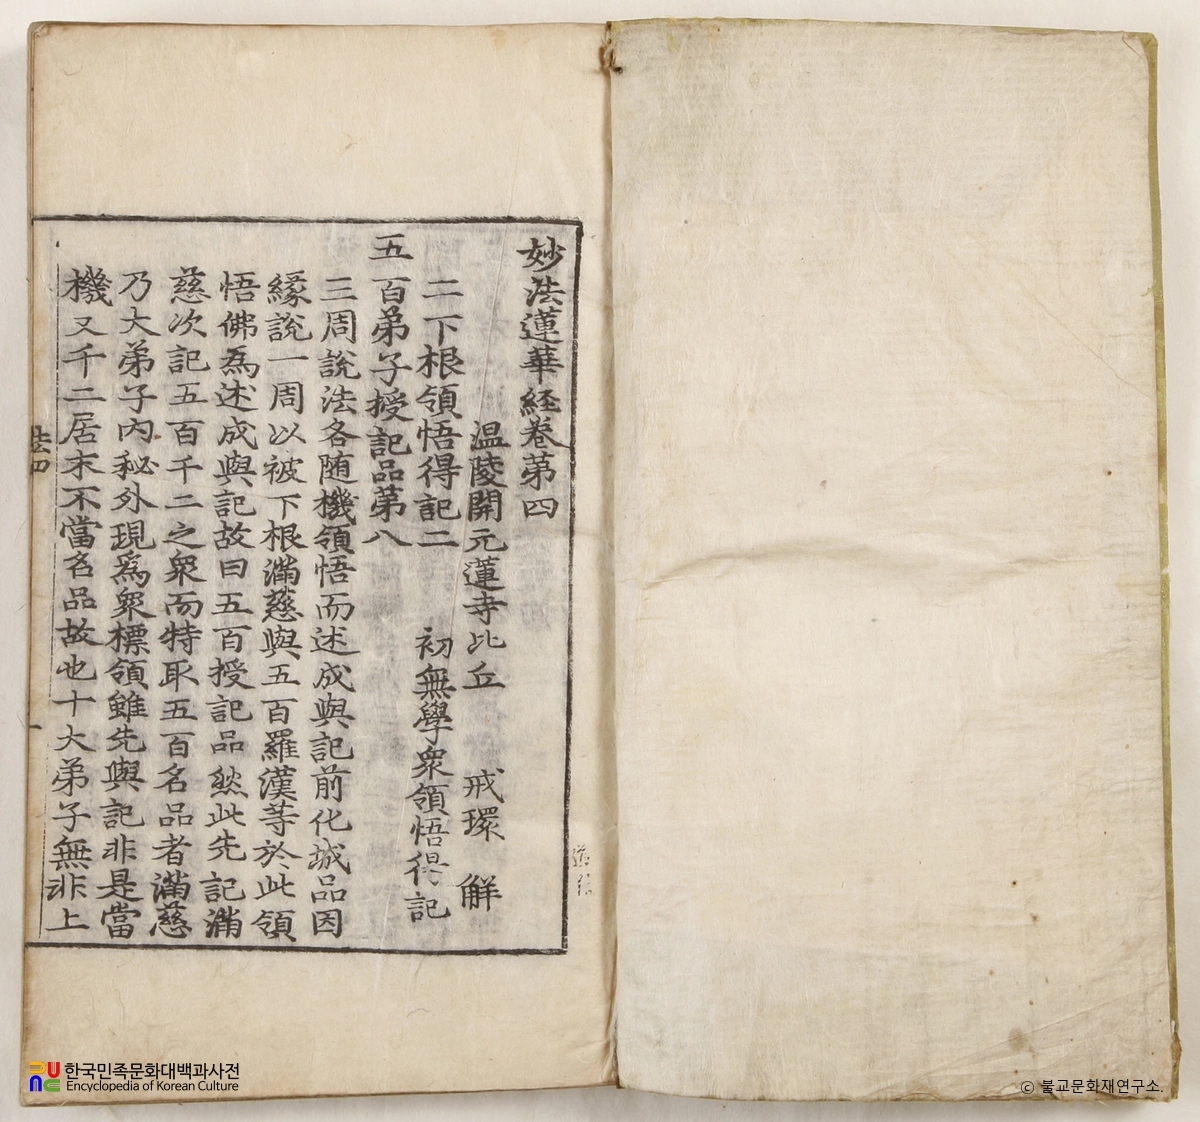 妙法蓮華経卷第四
温陵開元蓮寺比丘 戒環 解
二下根領悟得記二 初無學衆領悟得記
五百弟子授記品第八
三周說法各随機領悟而述成與記前化城品因
緣說一周以被下根滿慈與五百羅漢等於此領
悟佛爲述成與記故曰五百授記品然此先記滿
慈次記五百千二之衆而特取五百名品者滿慈
乃大弟子內秘外現爲衆標領雖先與記非是當
機又千二居末不當名品故也十大弟子無非上
法四
一
한국민족문화대백과사전
Encyclopedia of Korean Culture
© 불교문화재연구소.